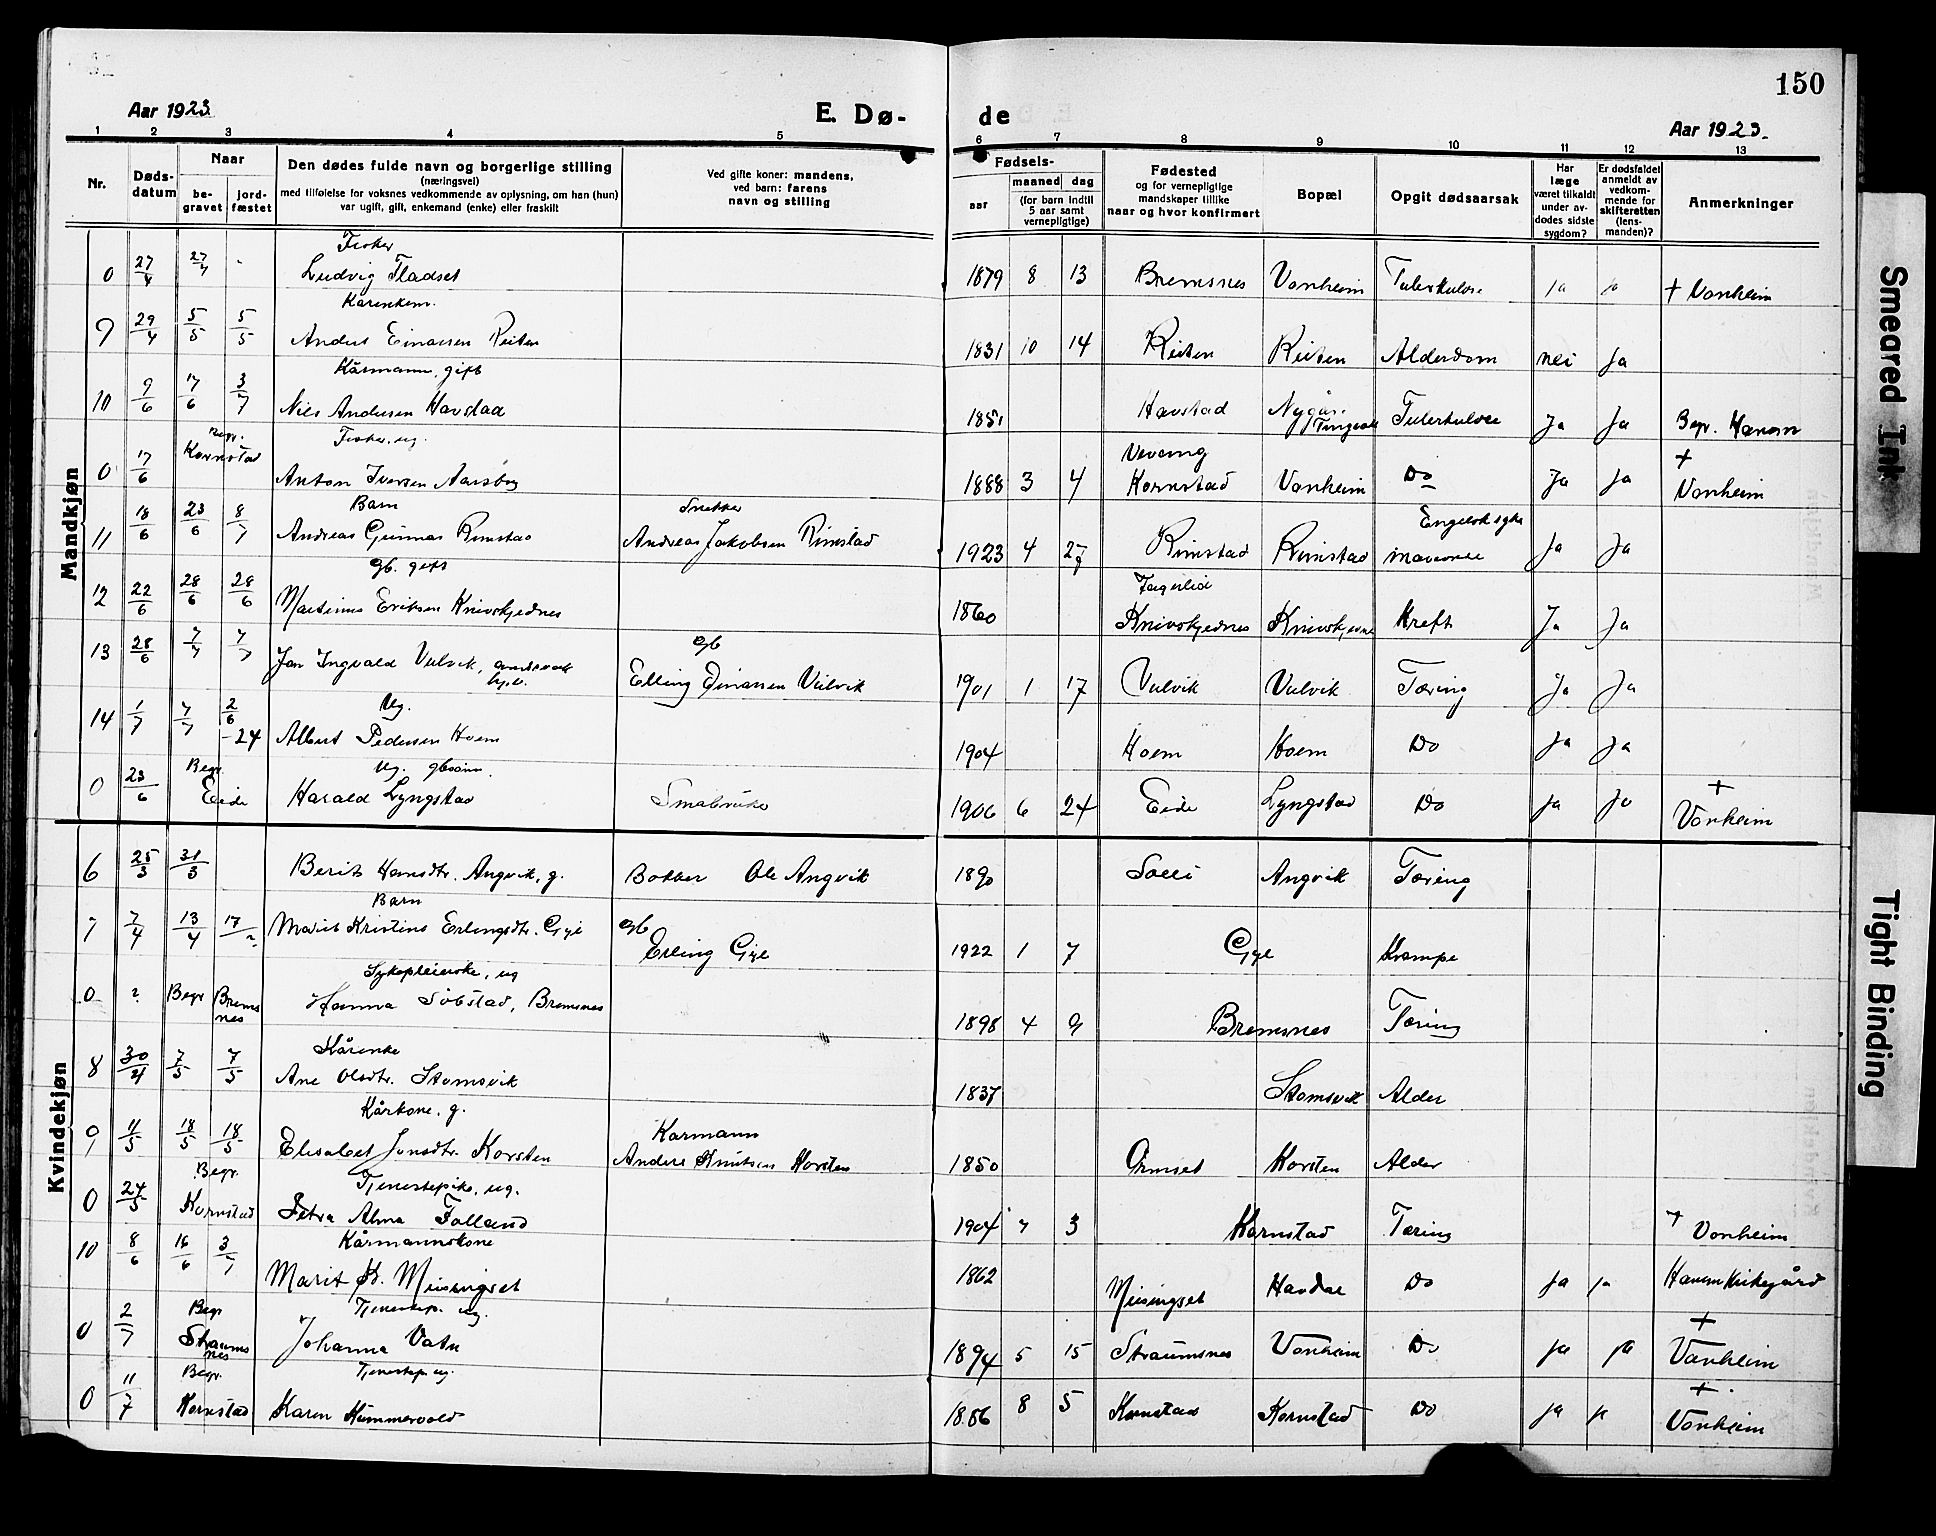 150
Aar 1923.
E. Dø-
de
Aar 1923.
1 2 3 4 5 6 7 8 9 10 11 12 13
Nr.
Døds-
datum
Naar
be-
gravet
jord-
fæstet
Den dødes fulde navn og borgerlige stilling
(næringsvei)
med tilføielse for voksnes vedkommende av oplysning, om han (hun)
var ugift, gift, enkemand (enke) eller fraskilt
Ved gifte koner: mandens,
ved barn: farens
navn og stilling
Fødsels-
aar
maaned dag
(for barn indtil
5 aar samt
vernepligtige)
Fødested
og for vernepligtige
mandskaper tillike
naar og hvor konfirmert
Bopæl
Opgit dødsaarsak
Har
læge
været tilkaldt
under av-
dødes sidste
sygdom?
Er dødsfaldet
anmeldt av
vedkom-
mende for
skifteretten
(lens-
manden)?
Anmerkninger
Mandkjøn
Fisker
0 27/4 27/4 - Ludvig Fladset 1879 8 13 Bremsnes Vonheim Tuberkulose ja ja + Vonheim
Kårenkem.
9 29/4 5/5 5/5 Anders Einarsen Reiten 1831 10 14 Reiten Reiten Alderdom nei Ja
Kårmann, gift
10 9/6 17/6 3/7 Nils Andersen Havstad 1851 Havstad Nygår. Tingvoll Tuberkulose Ja Ja Begr. Hanem
Begr. Fisker, ug. Vevang +
0 17/6 Kornstad Anton Iversen Aarsbog 1888 3 4 Kornstad Vonheim Do Ja Ja Vonheim
Barn Snekker Engelsk syke
11 18/6 23/6 8/7 Andreas Gunnar Rimstad Andreas Jakobsen Rimstad 1923 4 27 Rimstad Rimstad Ja Ja
gb. gift Fagerlid
12 22/6 28/6 28/6 Martinus Eriksen Knivskjednes 1860 Knivskjednes Knivskjednes Kreft Ja Ja
gb
13 28/6 7/7 7/7 Jon Ingvald Vulvik, Elling Einarsen Vulvik 1901 1 17 Vulvik Vulvik Tæring Ja Ja
Ug.
14 1/7 7/7 2/6 -24 Albert Pedersen Hoem 1904 Hoem Hoem Do Ja Ja
Begr. Ug. gbsønn. +
0 23/6 Eide Harald Lyngstad Småbruker 1906 6 24 Eide Lyngstad Do Ja Ja Vonheim
Kvindekjøn
6 25/3 31/3 Berit Hansdtr. Angvik, g. Bakker Ole Angvik 1890 Solli Angvik Tæring
Barn
7 7/4 13/4 17/? Marit Kristine Erlingsdtr. Gyl gb Erling Gyl 1922 1 7 Gyl Krampe
Sykepleierske, ug
0 ? Begr Bremsnes Hanna Sobstad, Bremsnes 1898 4 9 Bremsnes Tæring
Kårenke
8 30/4 7/5 7/5 Ane Olsdtr. Stomsvik 1837 Stomsvik Alder
Kårkone, g. Kårmann
9 11/5 18/5 18/5 Elisabet Jonsdtr. Korsten Anders Knutsen Korsten 1850 Ormset Korsten Alder
Begr. Tjenestepike, ug.
0 24/5 Kornstad Petra Alma Folland 1904 7 3 Kornstad Tæring + Vonheim
Kårmannskone
10 8/6 16/6 3/7 Marit K. Meisingset 1862 Meisingset Havdal Do Ja ja Hanem Kirkegård
Begr Tjenestep. ug. +
0 2/7 Straumsnes Johanna Vatn 1894 5 15 Straumsnes Vonheim Do Ja ja Vonheim
Begr. Tjenestep. ug. +
0 11/7 Kornstad Karen Kummervold 1886 8 5 Kornstad Kornstad Do Ja ja Vonheim
Smeared Ink
Tight Binding